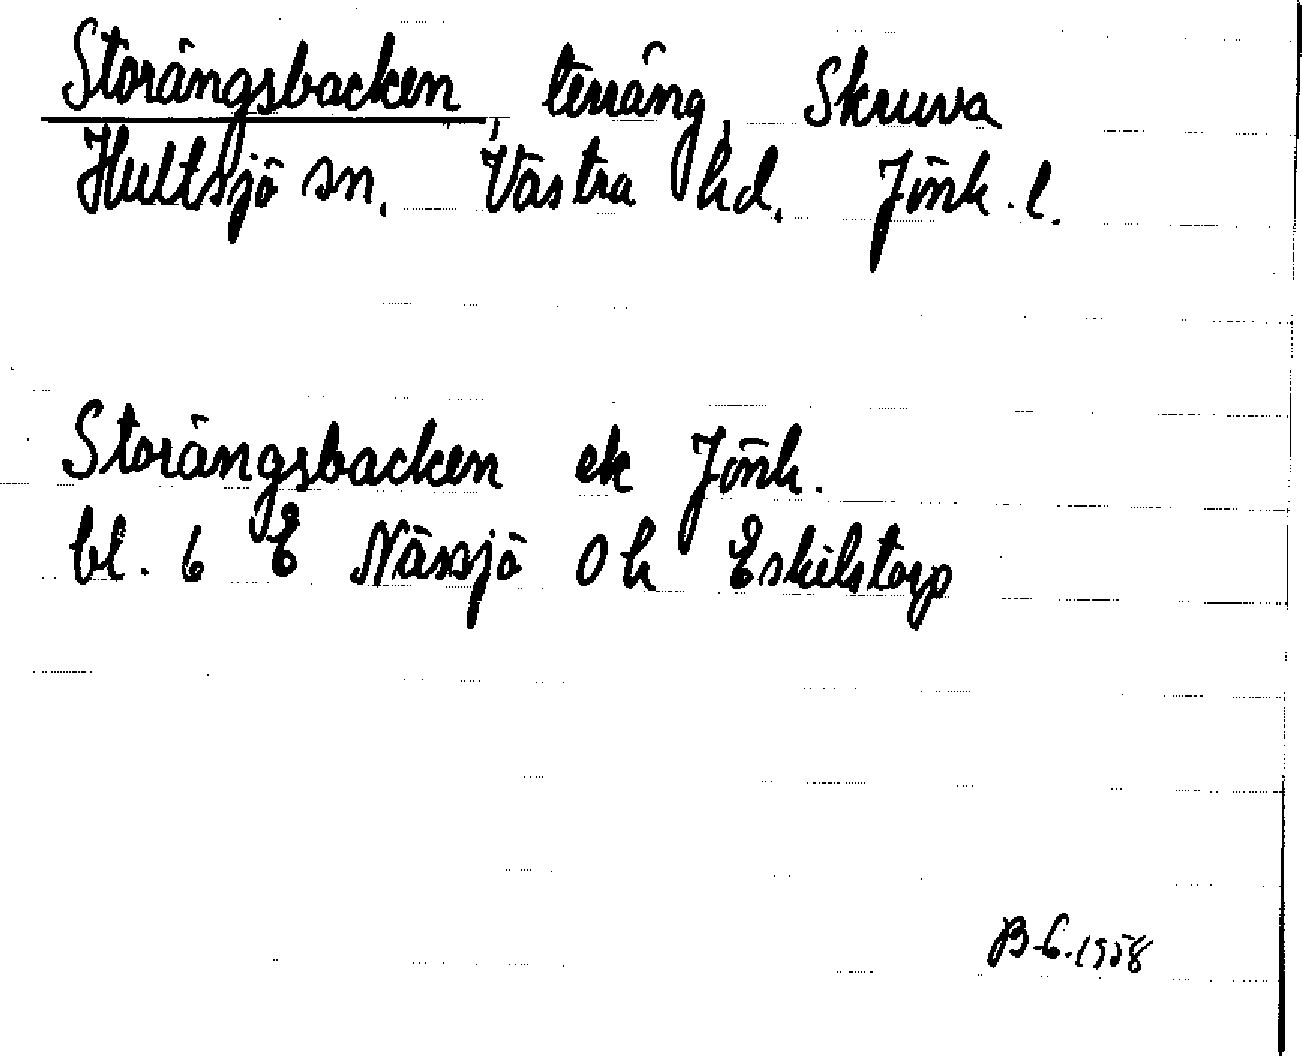 Storängsbacken, terräng, Skruva
Hultsjö sn. Västra hd. Jönk. l.
Storängsbacken ek Jönk.
bl. 6 E Nässjö Ok Eskilstorp
B-6.1958